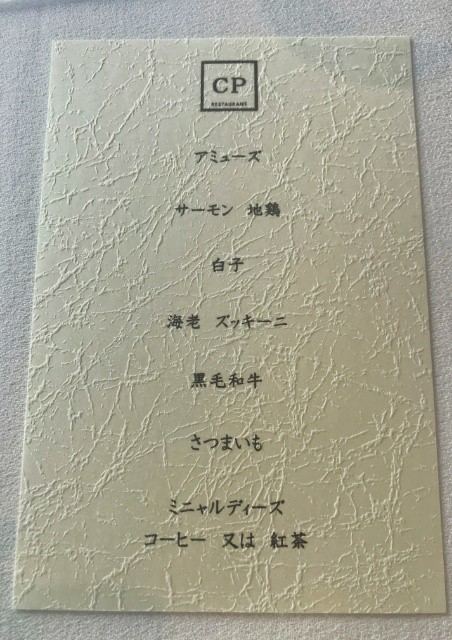 CP
RESTAURANT
アミューズ
サーモン 地鶏
白子
海老 ズッキーニ
黒毛和牛
さつまいも
ミニャルディーズ
コーヒー 又は 紅茶